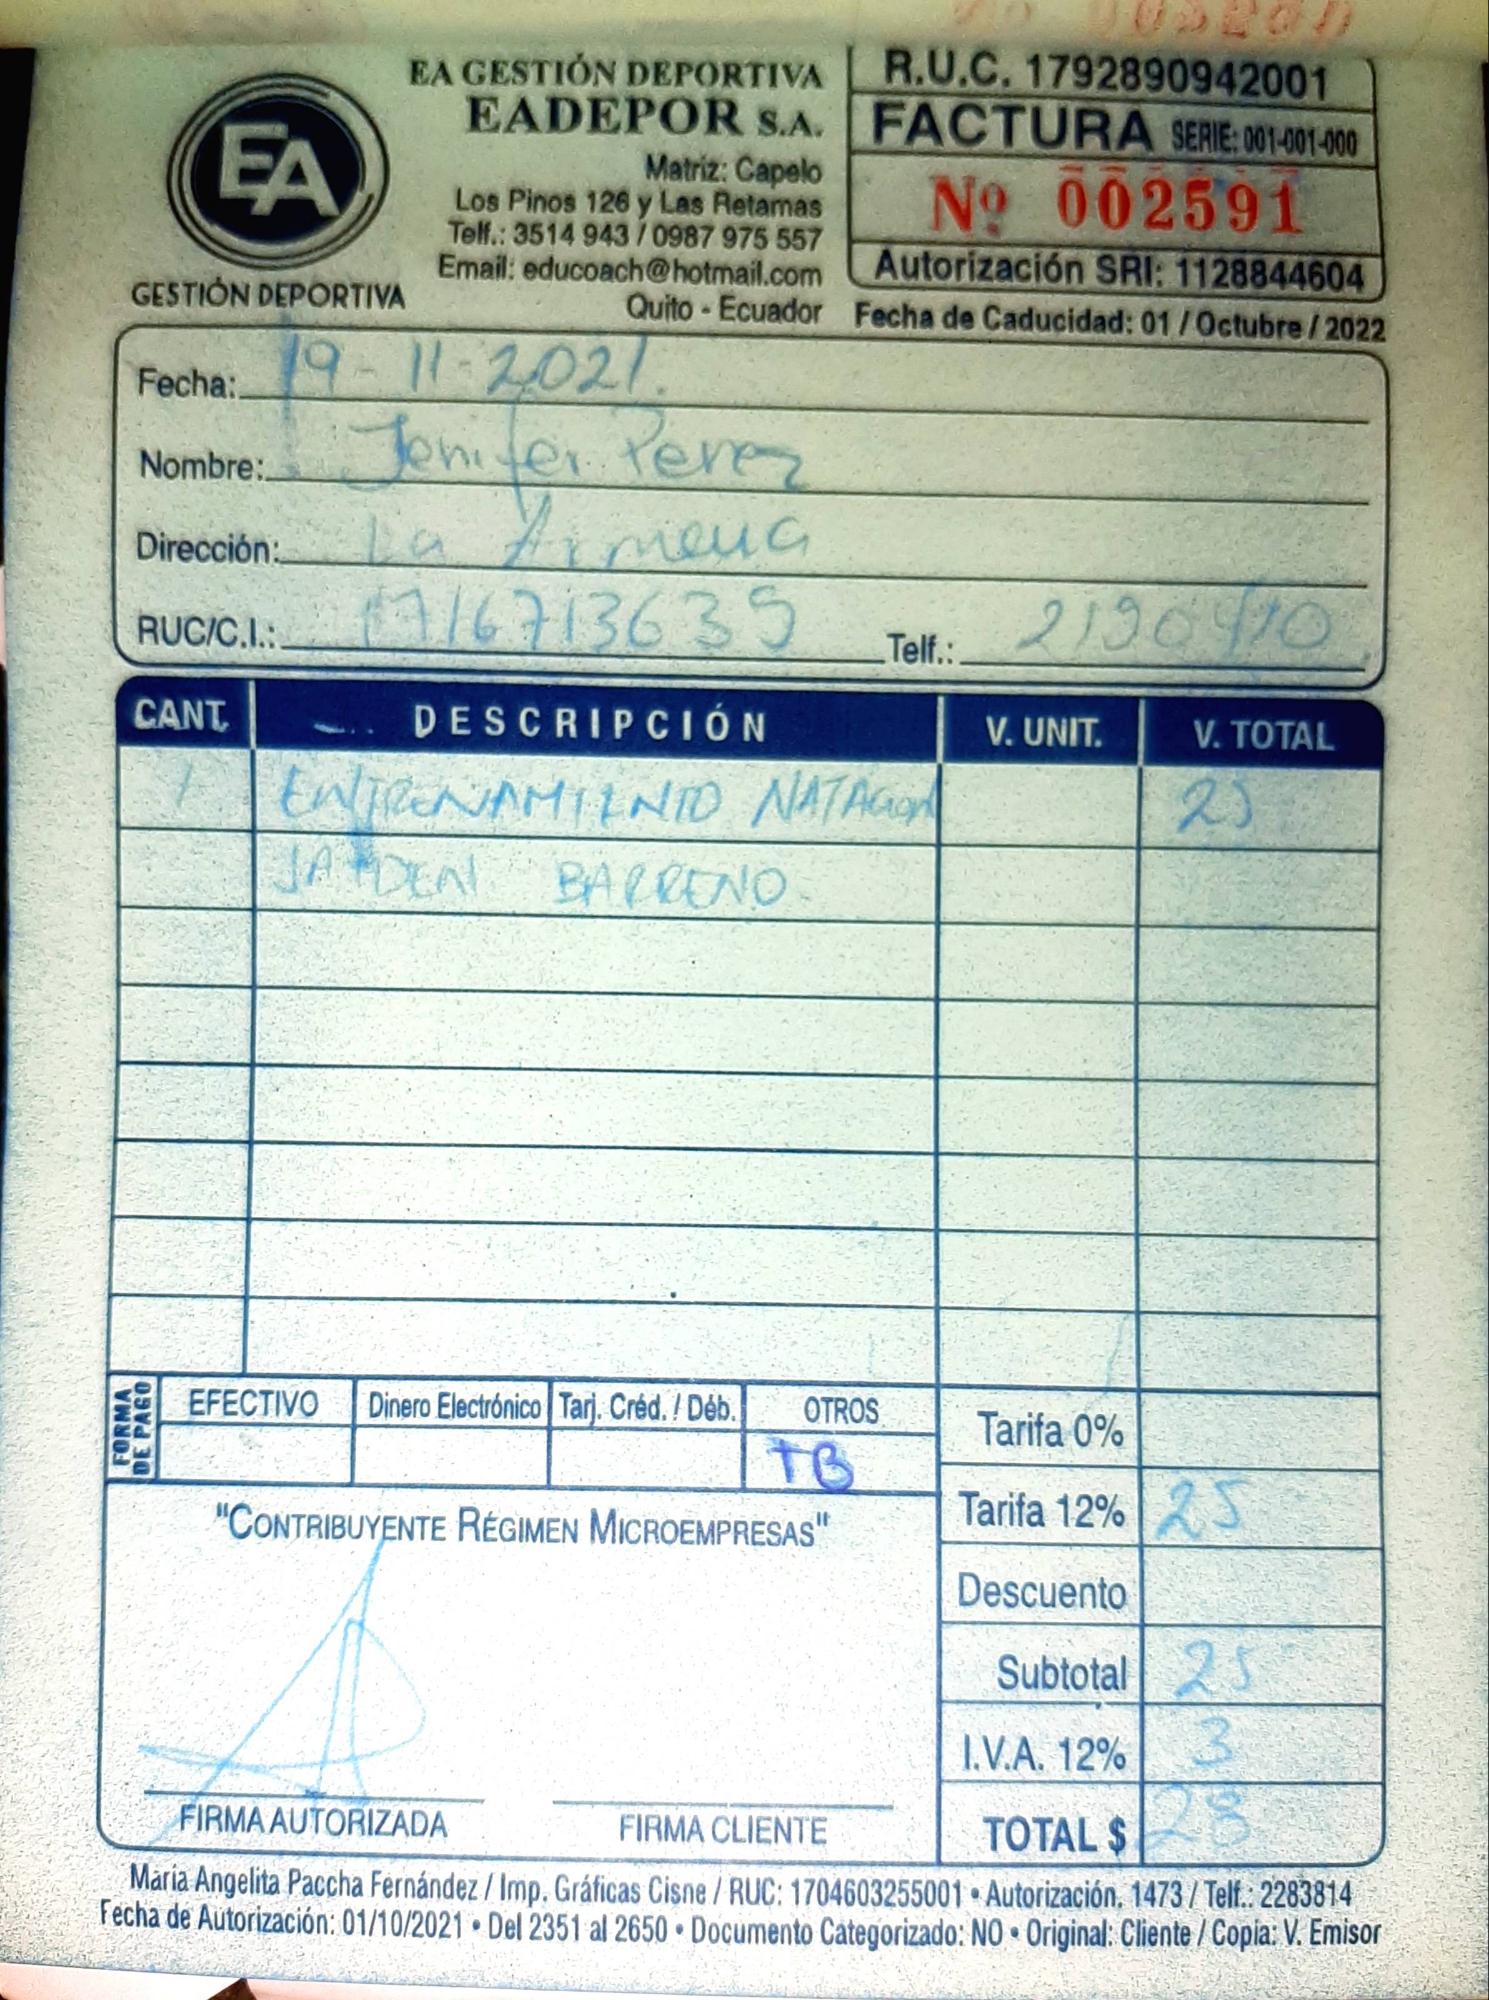 EA GESTIÓN DEPORTIVA
EADEPOR S.A.
Matriz: Capelo
Los Pinos 126 y Las Retamas
Telf.: 3514 943 / 0987 975 557
Email: educoach@hotmail.com
Quito - Ecuador
EA
GESTIÓN DEPORTIVA
R.U.C. 1792890942001
FACTURA SERIE: 001-001-000
Nº 002591
Autorización SRI: 1128844604
Fecha de Caducidad: 01 / Octubre / 2022
Fecha: 19-11-2021.
Nombre: Jenifer Perez
Dirección: La Armenia
RUC/C.I.: 1716713639 Telf.:
CANT. DESCRIPCIÓN V. UNIT. V. TOTAL
1 ENTRENAMIENTO NATACION 25
BARRENO
FORMA DE PAGO
EFECTIVO Dinero Electrónico Tarj. Créd. / Déb. OTROS
TB
Tarifa 0%
Tarifa 12% 25
Descuento
Subtotal 25
I.V.A. 12% 3
TOTAL $ 28
"CONTRIBUYENTE RÉGIMEN MICROEMPRESAS"
FIRMA AUTORIZADA FIRMA CLIENTE
María Angelita Paccha Fernández / Imp. Gráficas Cisne / RUC: 1704603255001 • Autorización. 1473 / Telf.: 2283814
Fecha de Autorización: 01/10/2021 • Del 2351 al 2650 • Documento Categorizado: NO • Original: Cliente / Copia: V. Emisor